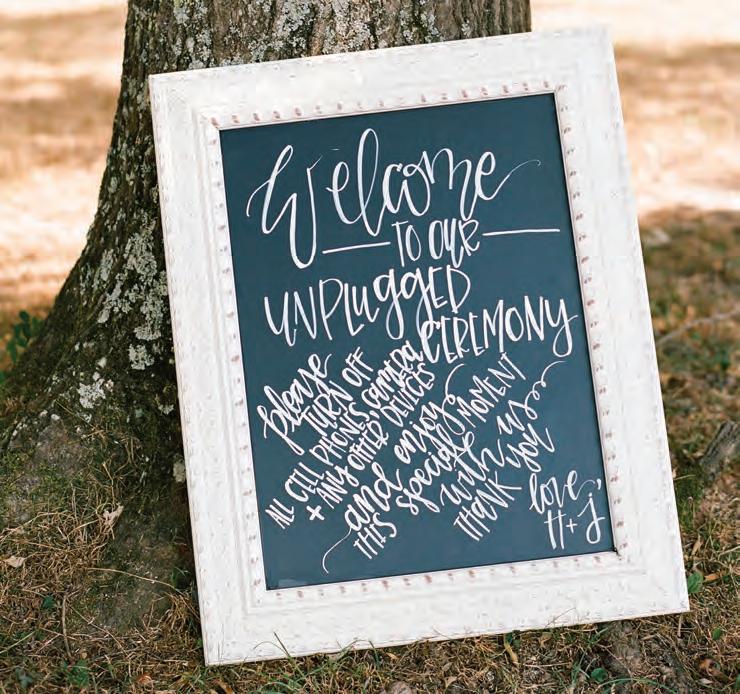 Welcome
TO OUR
UNPLUGGED
CEREMONY
please
TURN OFF
ALL CELL PHONES, CAMERA,
+ ANY OTHER DEVICES
and enjoy
THIS special MOMENT
with us
THANK you
love,
H+J